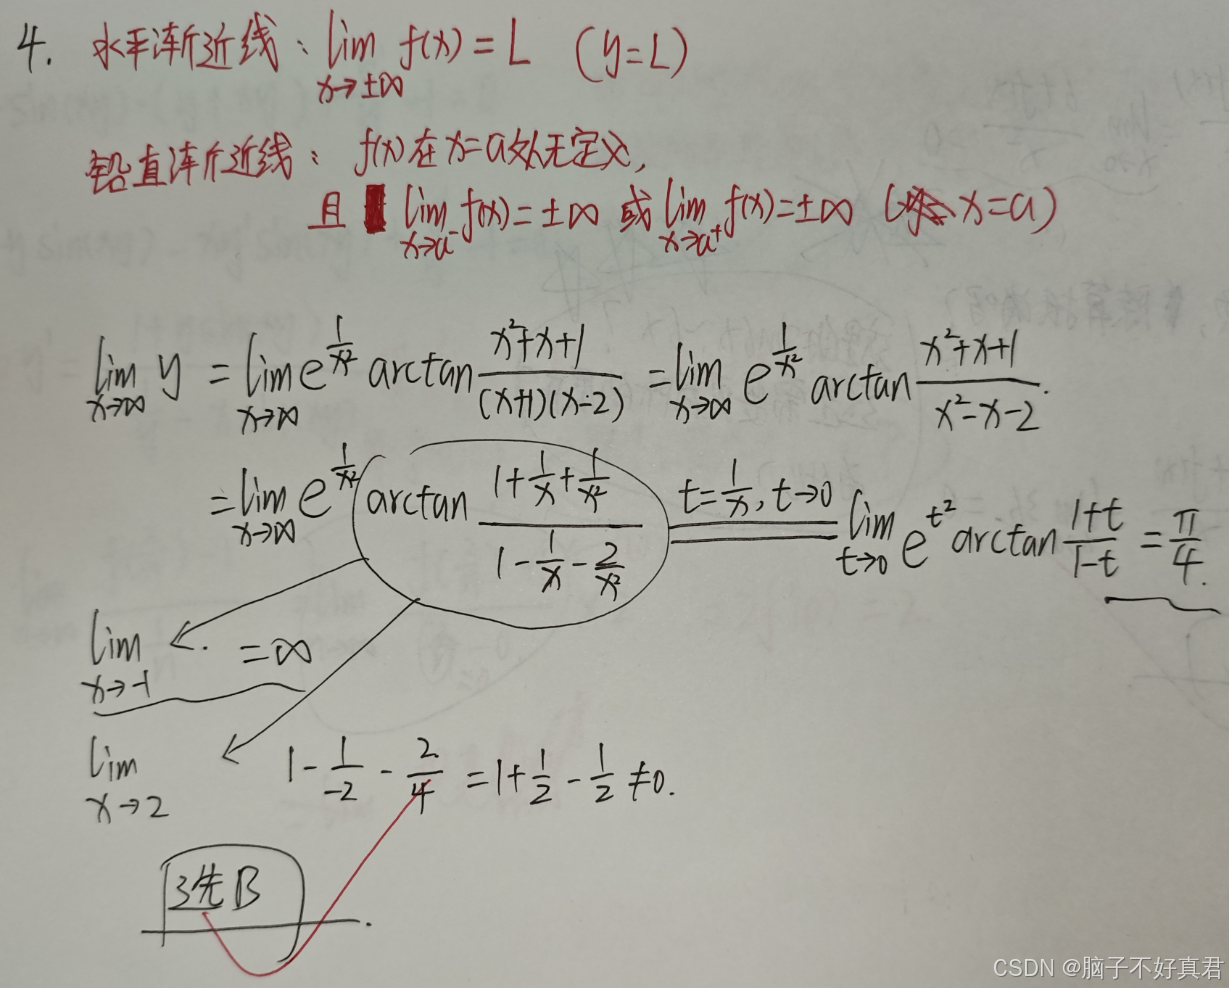 4. 水平渐近线：lim x→±∞ f(x) = L (y=L)
铅直渐近线：f(x)在x=a处无定义,
且 lim x→a⁻ f(x) = ±∞ 或 lim x→a⁺ f(x) = ±∞ ( x=a)
lim x→∞ y = lim x→∞ e^(1/x²) arctan (x²+x+1)/((x+1)(x-2)) = lim x→∞ e^(1/x²) arctan (x²+x+1)/(x²-x-2).
= lim x→∞ e^(1/x²) arctan (1+1/x+1/x²)/(1-1/x-2/x²) t=1/x, t→0 lim t→0 e^(t²) arctan (1+t)/(1-t) = π/4.
lim x→-1 = ∞
lim x→2 1 - 1/-2 - 2/4 = 1+1/2-1/2 ≠0.
B
CSDN @脑子不好真君